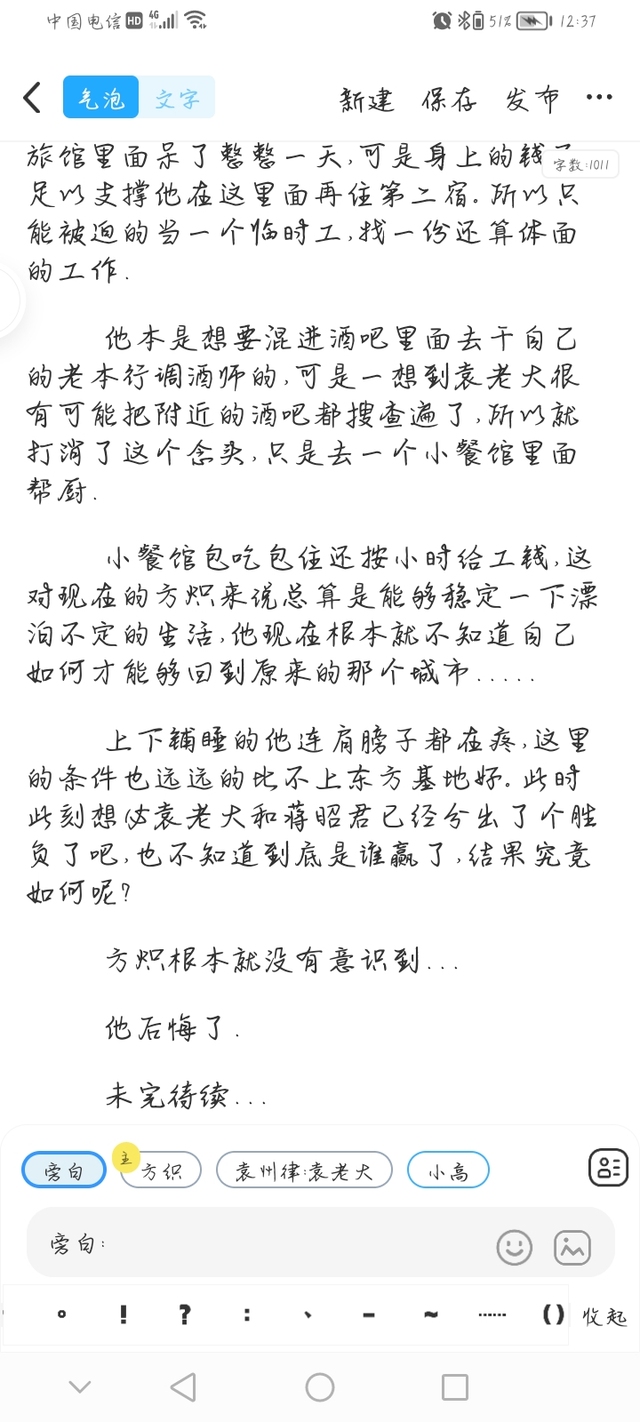 中国电信 HD 4G 51% 12:37
气泡 文字 新建 保存 发布 ...
旅馆里面呆了整整一天,可是身上的钱
字数:1011
足以支撑他在这里面再住第二宿。所以只
能被迫的当一个临时工,找一份还算体面
的工作.
他本是想要混进酒吧里面去干自己
的老本行调酒师的,可是一想到袁老大很
有可能把附近的酒吧都搜查遍了,所以就
打消了这个念头,只是去一个小餐馆里面
帮厨.
小餐馆包吃包住还按小时给工钱,这
对现在的方炽来说总算是能够稳定一下漂
泊不定的生活,他现在根本就不知道自己
如何才能够回到原来的那个城市.....
上下铺睡的他连肩膀子都在疼,这里
的条件也远远的比不上东方基地好。此时
此刻想必袁老大和蒋昭君已经分出了个胜
负了吧,也不知道到底是谁赢了,结果究竟
如何呢?
方炽根本就没有意识到...
他后悔了.
未完待续...
旁白 主 方织 袁州律:袁老大 小高
旁白:
。 ! ? : 、 - ~ …… () 收起